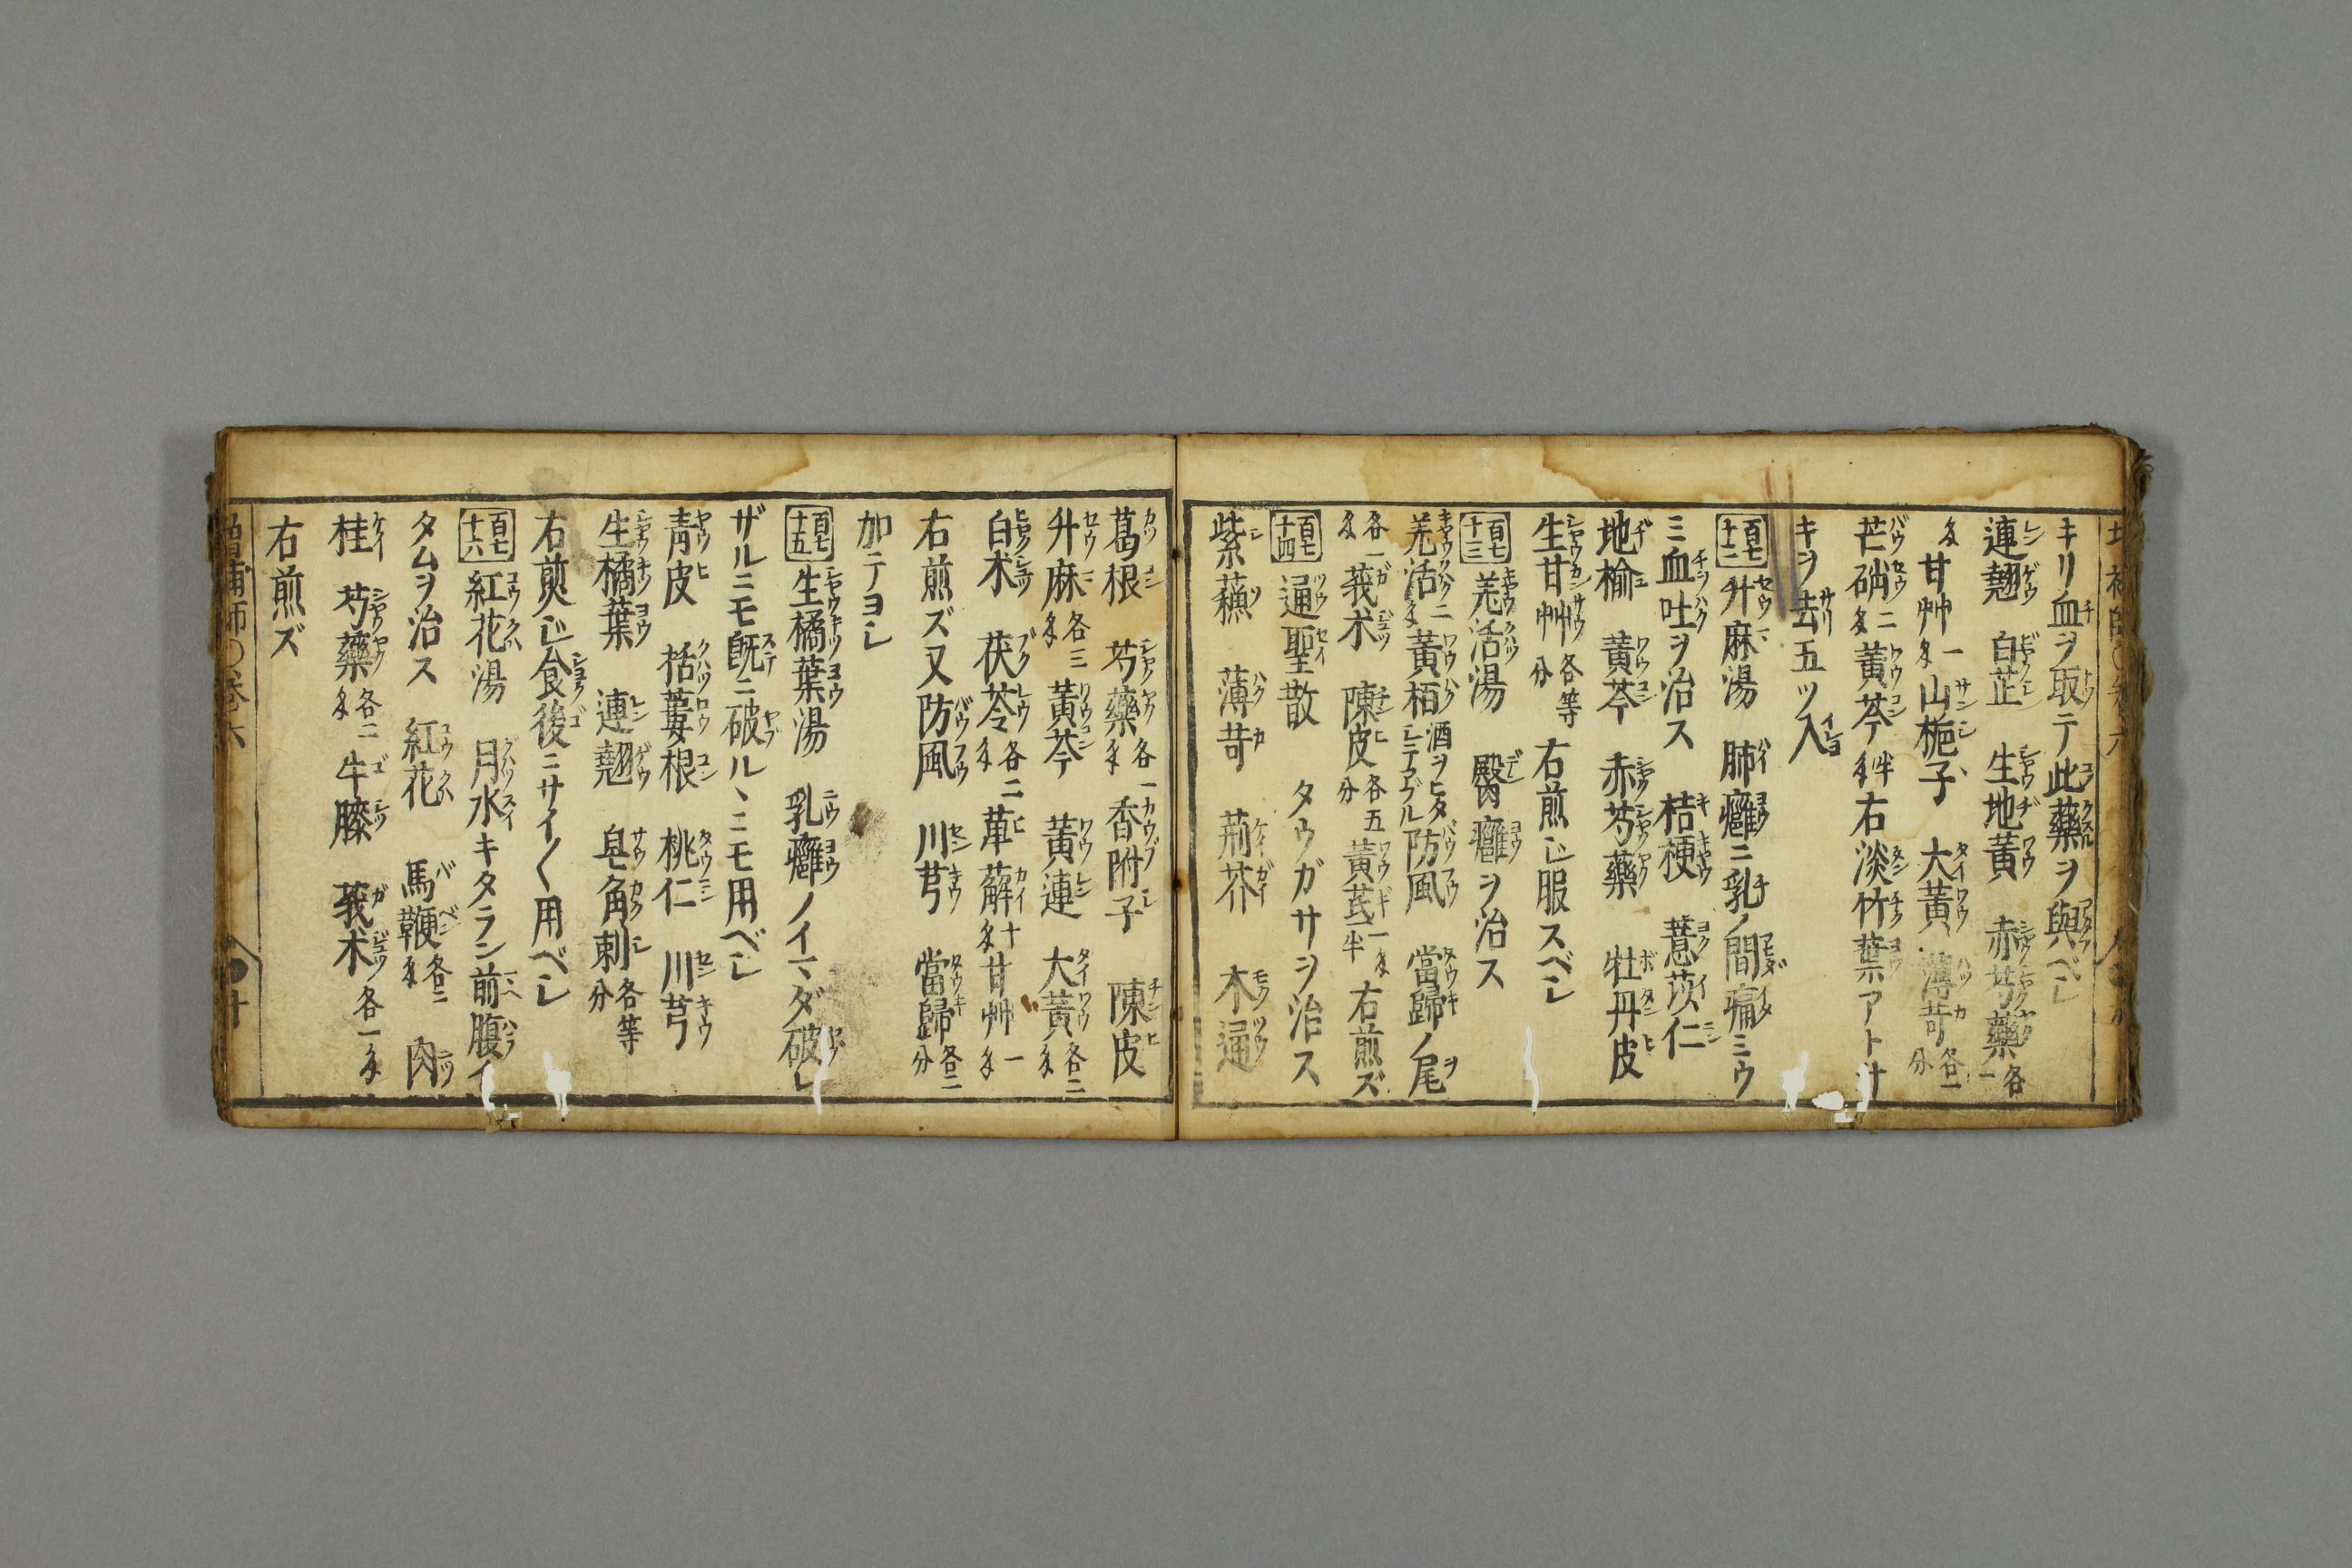 キリ血ヲ取テ此藥ヲ與ベシ
連翹 白芷 生地黄 赤芍藥各一
匁甘艸一匁山梔子 大黄 薄苛各一分
芒硝二匁黄芩半匁右淡竹葉アトサ
キヲ去五ツ入
百七十二 升麻湯 肺癰ニ乳ノ間痛ミウ
ミ血吐ヲ治ス 桔梗 薏苡仁
地楡 黄芩 赤芍藥 牡丹皮
生甘艸各等分 右煎ジ服スベシ
百七十三 羌活湯 臀癰ヲ治ス
羌活二匁黄栢酒ヲヒタシテアブル防風 當歸ノ尾
各一匁莪朮 陳皮各五分 黄芪一匁半 右煎ズ
百七十四 通聖散 タウガサヲ治ス
紫蘓 薄苛 荊芥 木通
葛根 芍藥各一匁 香附子 陳皮
升麻各三匁 黄芩 黄連 大黄各二匁
白朮 茯苓各二匁 萆薢十匁甘艸一匁
右煎ズ又防風 川芎 當歸各二分
加テヨシ
百七十五 生橘葉湯 乳癰ノイマダ破レ
ザルニモ既ニ破ル丶ニモ用ベシ
青皮 括蔞根 桃仁 川芎
生橘葉 連翹 皂角刺各等分
右煎ジ食後ニサイ〱用ベシ
百七十六 紅花湯 月水キタラン前腹イ
タムヲ治ス 紅花 馬鞭各三匁 肉
桂 芍藥各二匁 牛膝 莪朮各一匁
右煎ズ
増補師〇巻六 十